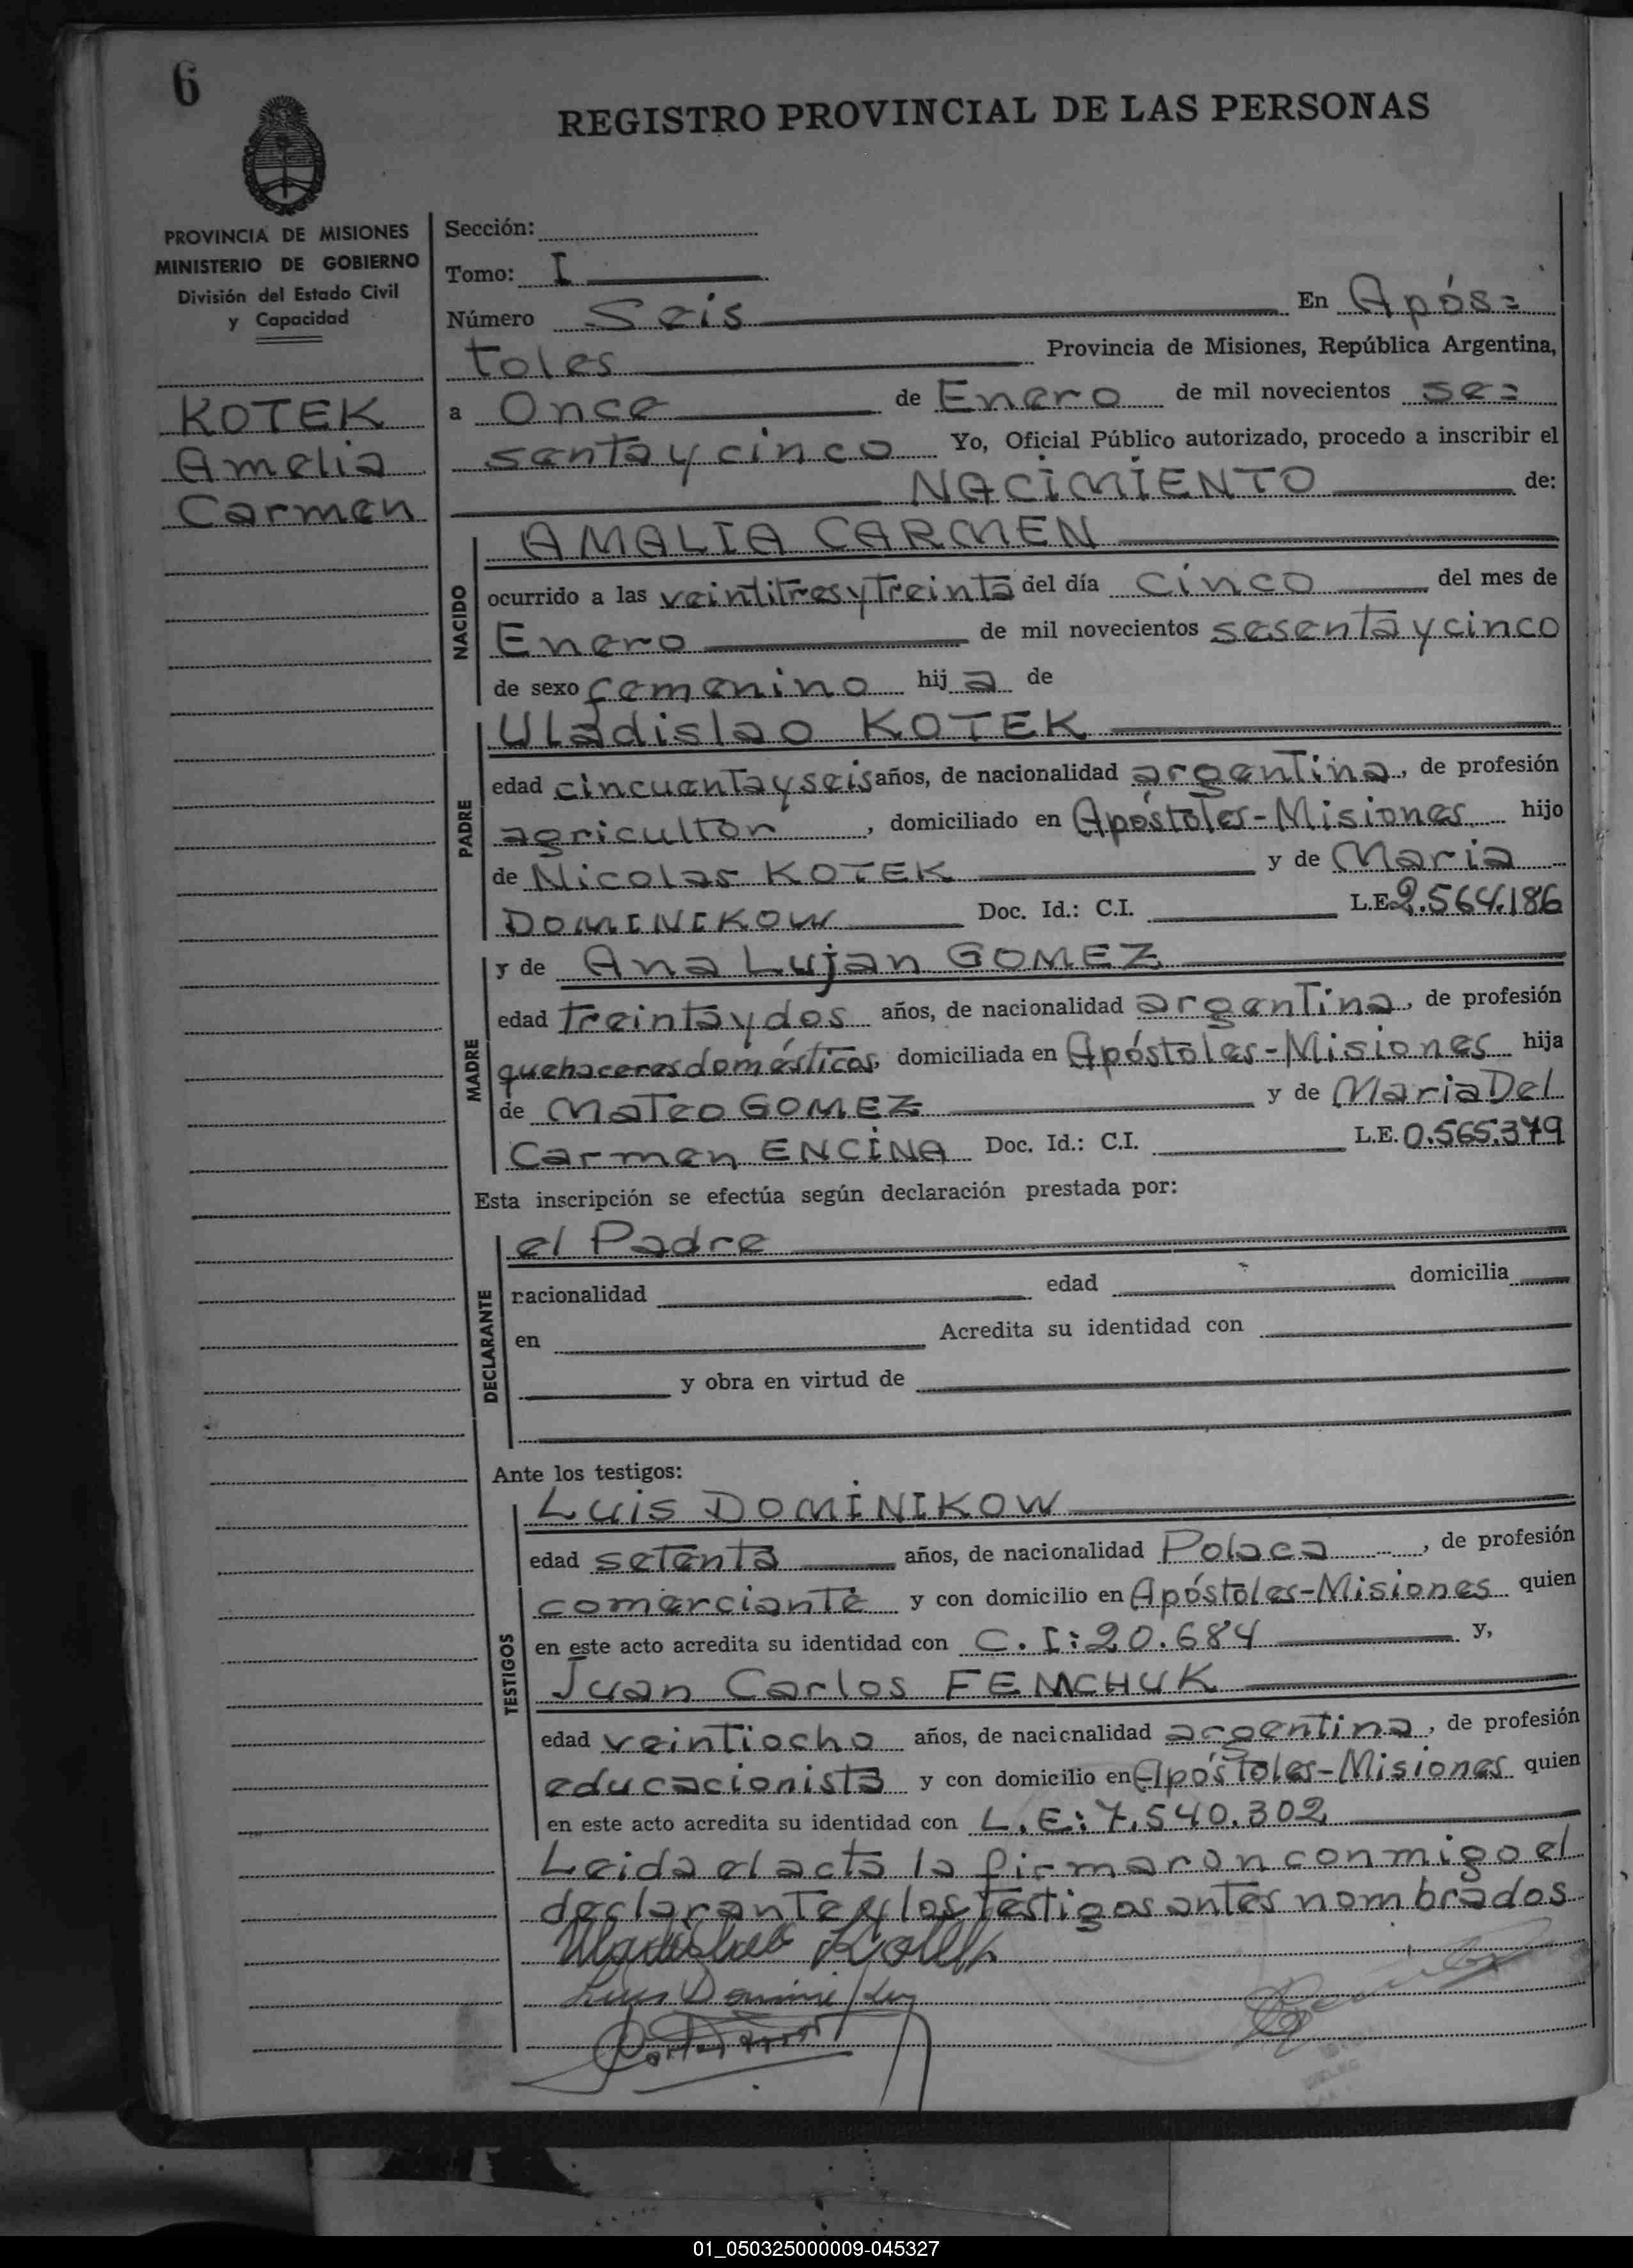 6
REGISTRO PROVINCIAL DE LAS PERSONAS
PROVINCIA DE MISIONES
MINISTERIO DE GOBIERNO
División del Estado Civil
y Capacidad
KOTEK
Amelia
Carmen
Sección:
Tomo: I
Número Seis En Após=
toles Provincia de Misiones, República Argentina,
a Once de Enero de mil novecientos se=
senta y cinco Yo, Oficial Público autorizado, procedo a inscribir el
NACIMIENTO de:
NACIDO
AMALIA CARMEN
ocurrido a las veintitres y Treinta del día cinco del mes de
Enero de mil novecientos sesenta y cinco
de sexo femenino hij a de
PADRE
Uladislao KOTEK
edad cincuenta y seis años, de nacionalidad argentina, de profesión
agricultor, domiciliado en Apóstoles-Misiones hijo
de Nicolas KOTEK y de Maria
DOMINIKOW Doc. Id.: C.I. L.E. 2.564.186
MADRE
y de Ana Lujan GOMEZ
edad treinta y dos años, de nacionalidad argentina, de profesión
quehaceres domésticos, domiciliada en Apóstoles-Misiones hija
de Mateo GOMEZ y de Maria Del
Carmen ENCINA Doc. Id.: C.I. L.E. 0.565.379
Esta inscripción se efectúa según declaración prestada por:
DECLARANTE
el Padre
nacionalidad edad domicilia
en Acredita su identidad con
y obra en virtud de
Ante los testigos:
TESTIGOS
Luis DOMINIKOW
edad setenta años, de nacionalidad Polaca, de profesión
comerciante y con domicilio en Apóstoles-Misiones quien
en este acto acredita su identidad con C.I: 20.684 y,
Juan Carlos FEMCHUK
edad veintiocho años, de nacionalidad argentina, de profesión
educacionista y con domicilio en Apóstoles-Misiones quien
en este acto acredita su identidad con L.E: 7.540.302
Leida el acta la firmaron conmigo el
declarante y los testigos antes nombrados
Uladislao Kotek
Luis
01_050325000009-045327